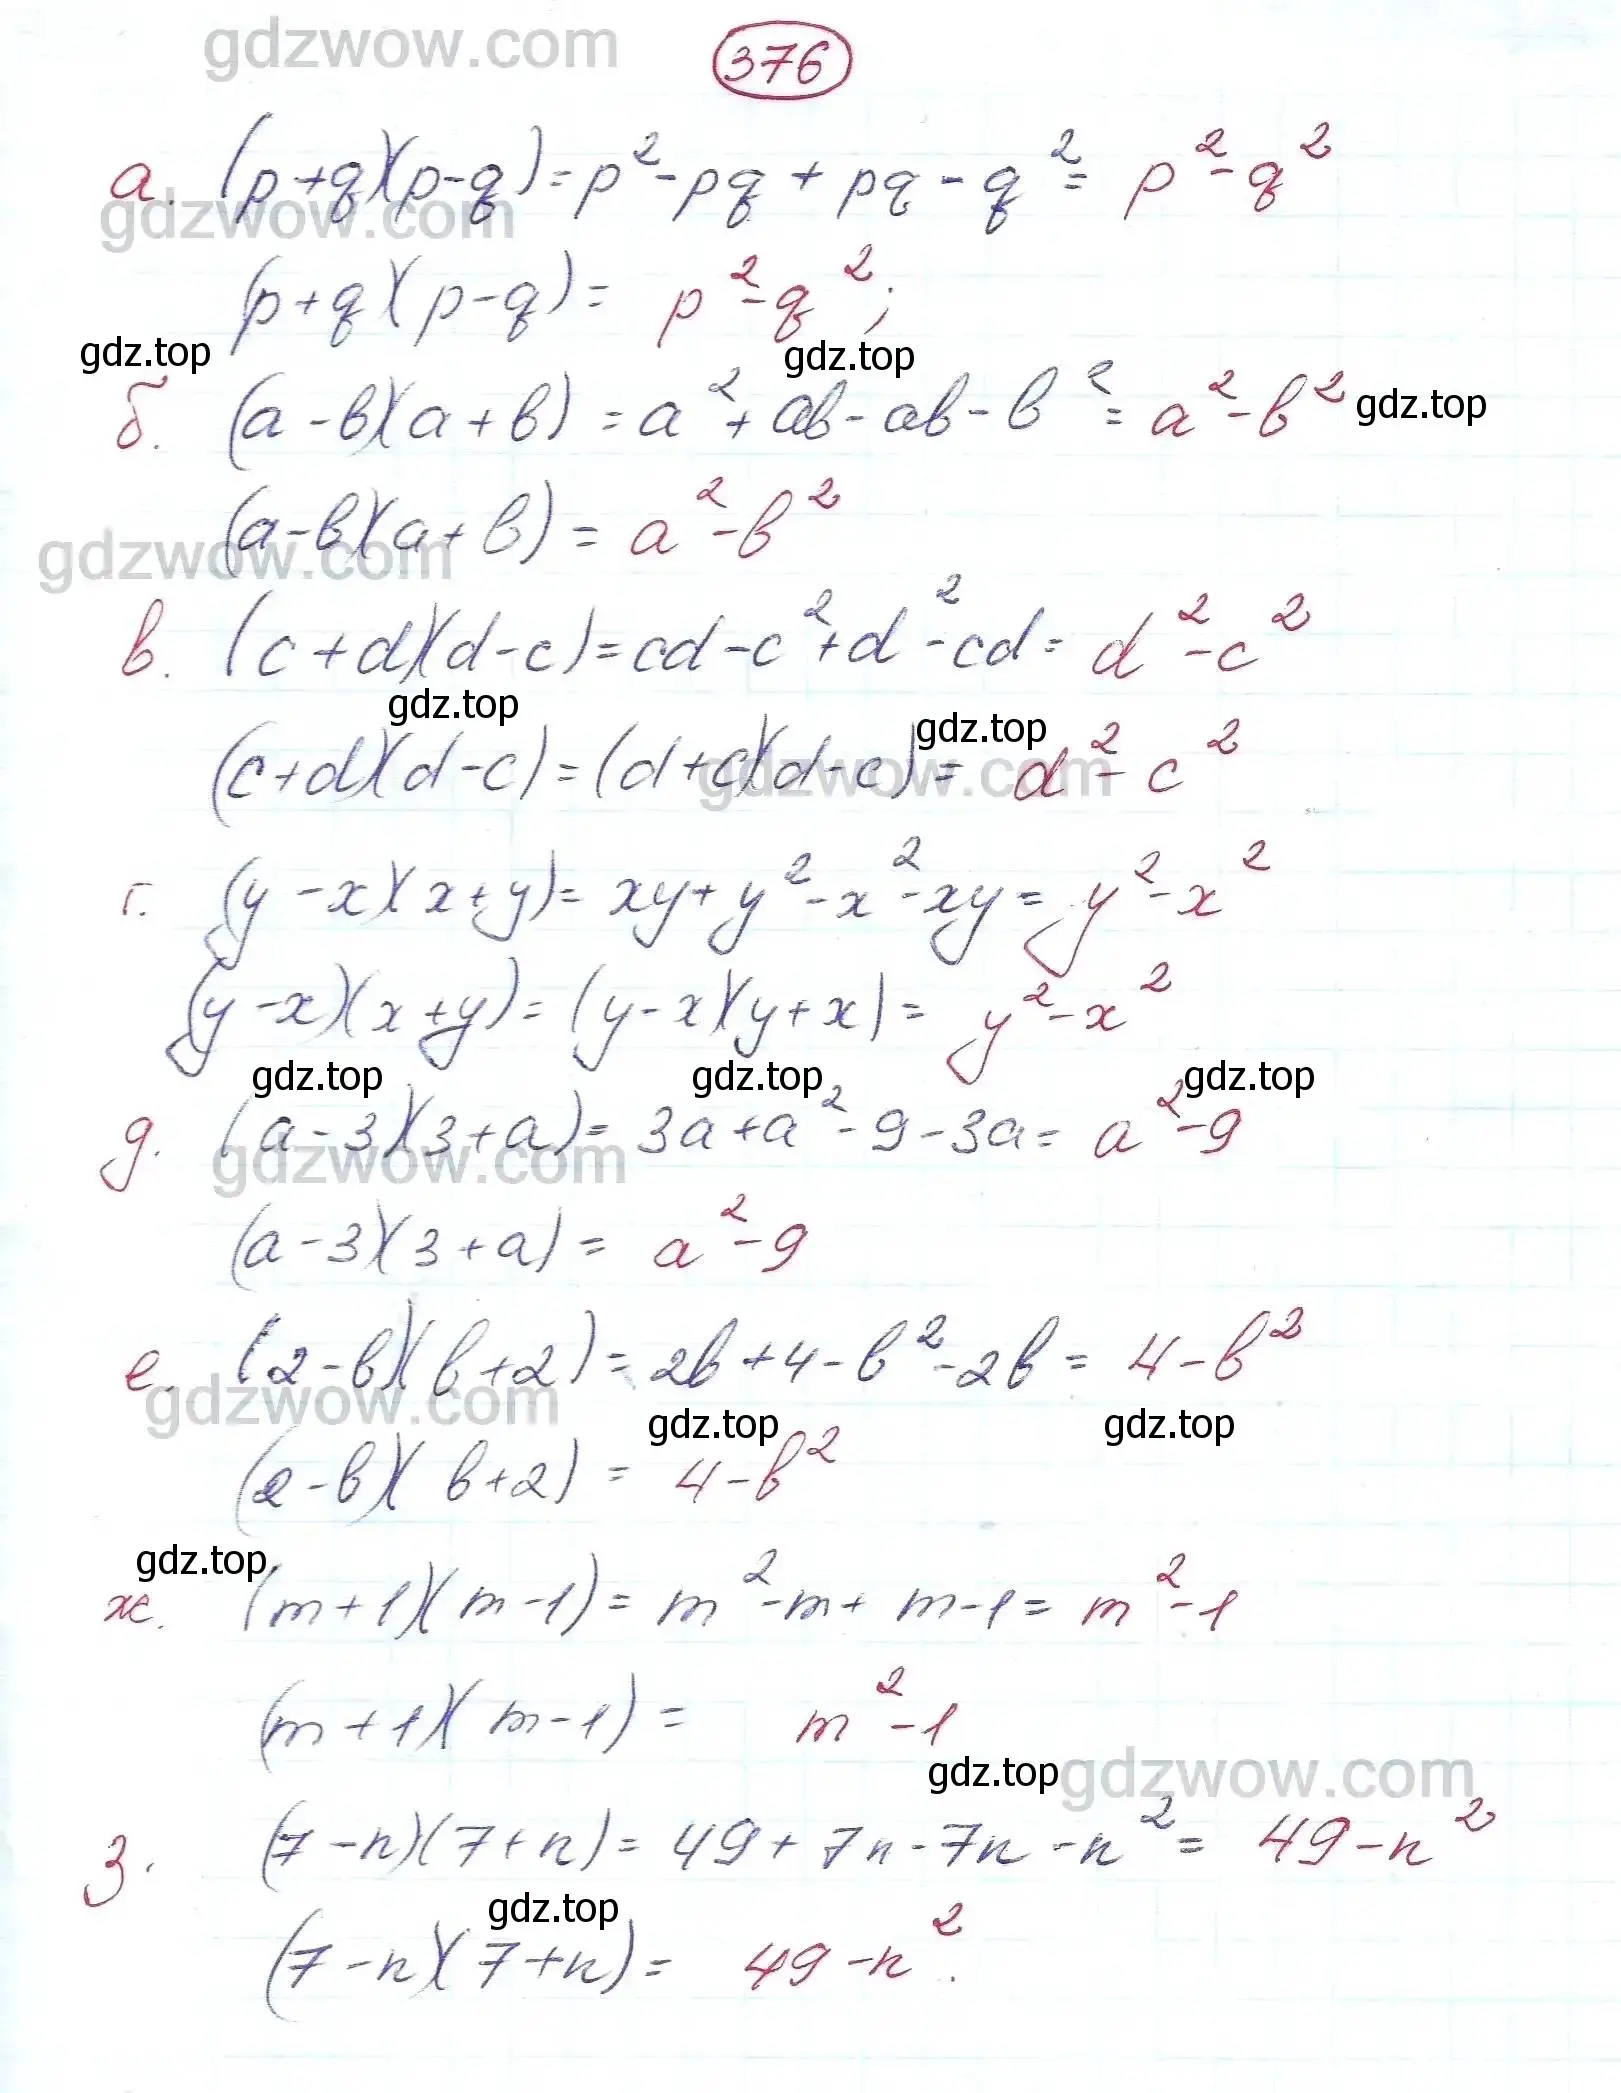 gdzwow.com
376
а. (p+q)(p-q)=p²-pq+pq-q²= p²-q²
gdzwow.com
(p+q)(p-q)= p²-q²;
gdz.top gdz.top
б. (a-b)(a+b)=a²+ab-ab-b²= a²-b² gdz.top
(a-b)(a+b)= a²-b²
gdzwow.com
в. (c+d)(d-c)=cd-c²+d²-cd= d²-c²
gdz.top gdz.top
(c+d)(d-c)=(d+c)(d-c)= d²-c²
gdzwow.com
г. (y-x)(x+y)= xy+y²-x²-xy= y²-x²
(y-x)(x+y)=(y-x)(y+x)= y²-x²
gdz.top gdz.top gdz.top
д. (a-3)(3+a)= 3a+a²-9-3a= a²-9
gdzwow.com
(a-3)(3+a)= a²-9
е. (2-b)(b+2)=2b+4-b²-2b= 4-b²
gdzwow.com
gdz.top gdz.top
(2-b)(b+2)= 4-b²
gdz.top
ж. (m+1)(m-1)= m²-m+m-1= m²-1
(m+1)(m-1)= m²-1
gdz.top gdzwow.com
з. (7-n)(7+n)= 49+7n-7n-n²= 49-n²
gdz.top
(7-n)(7+n)= 49-n².